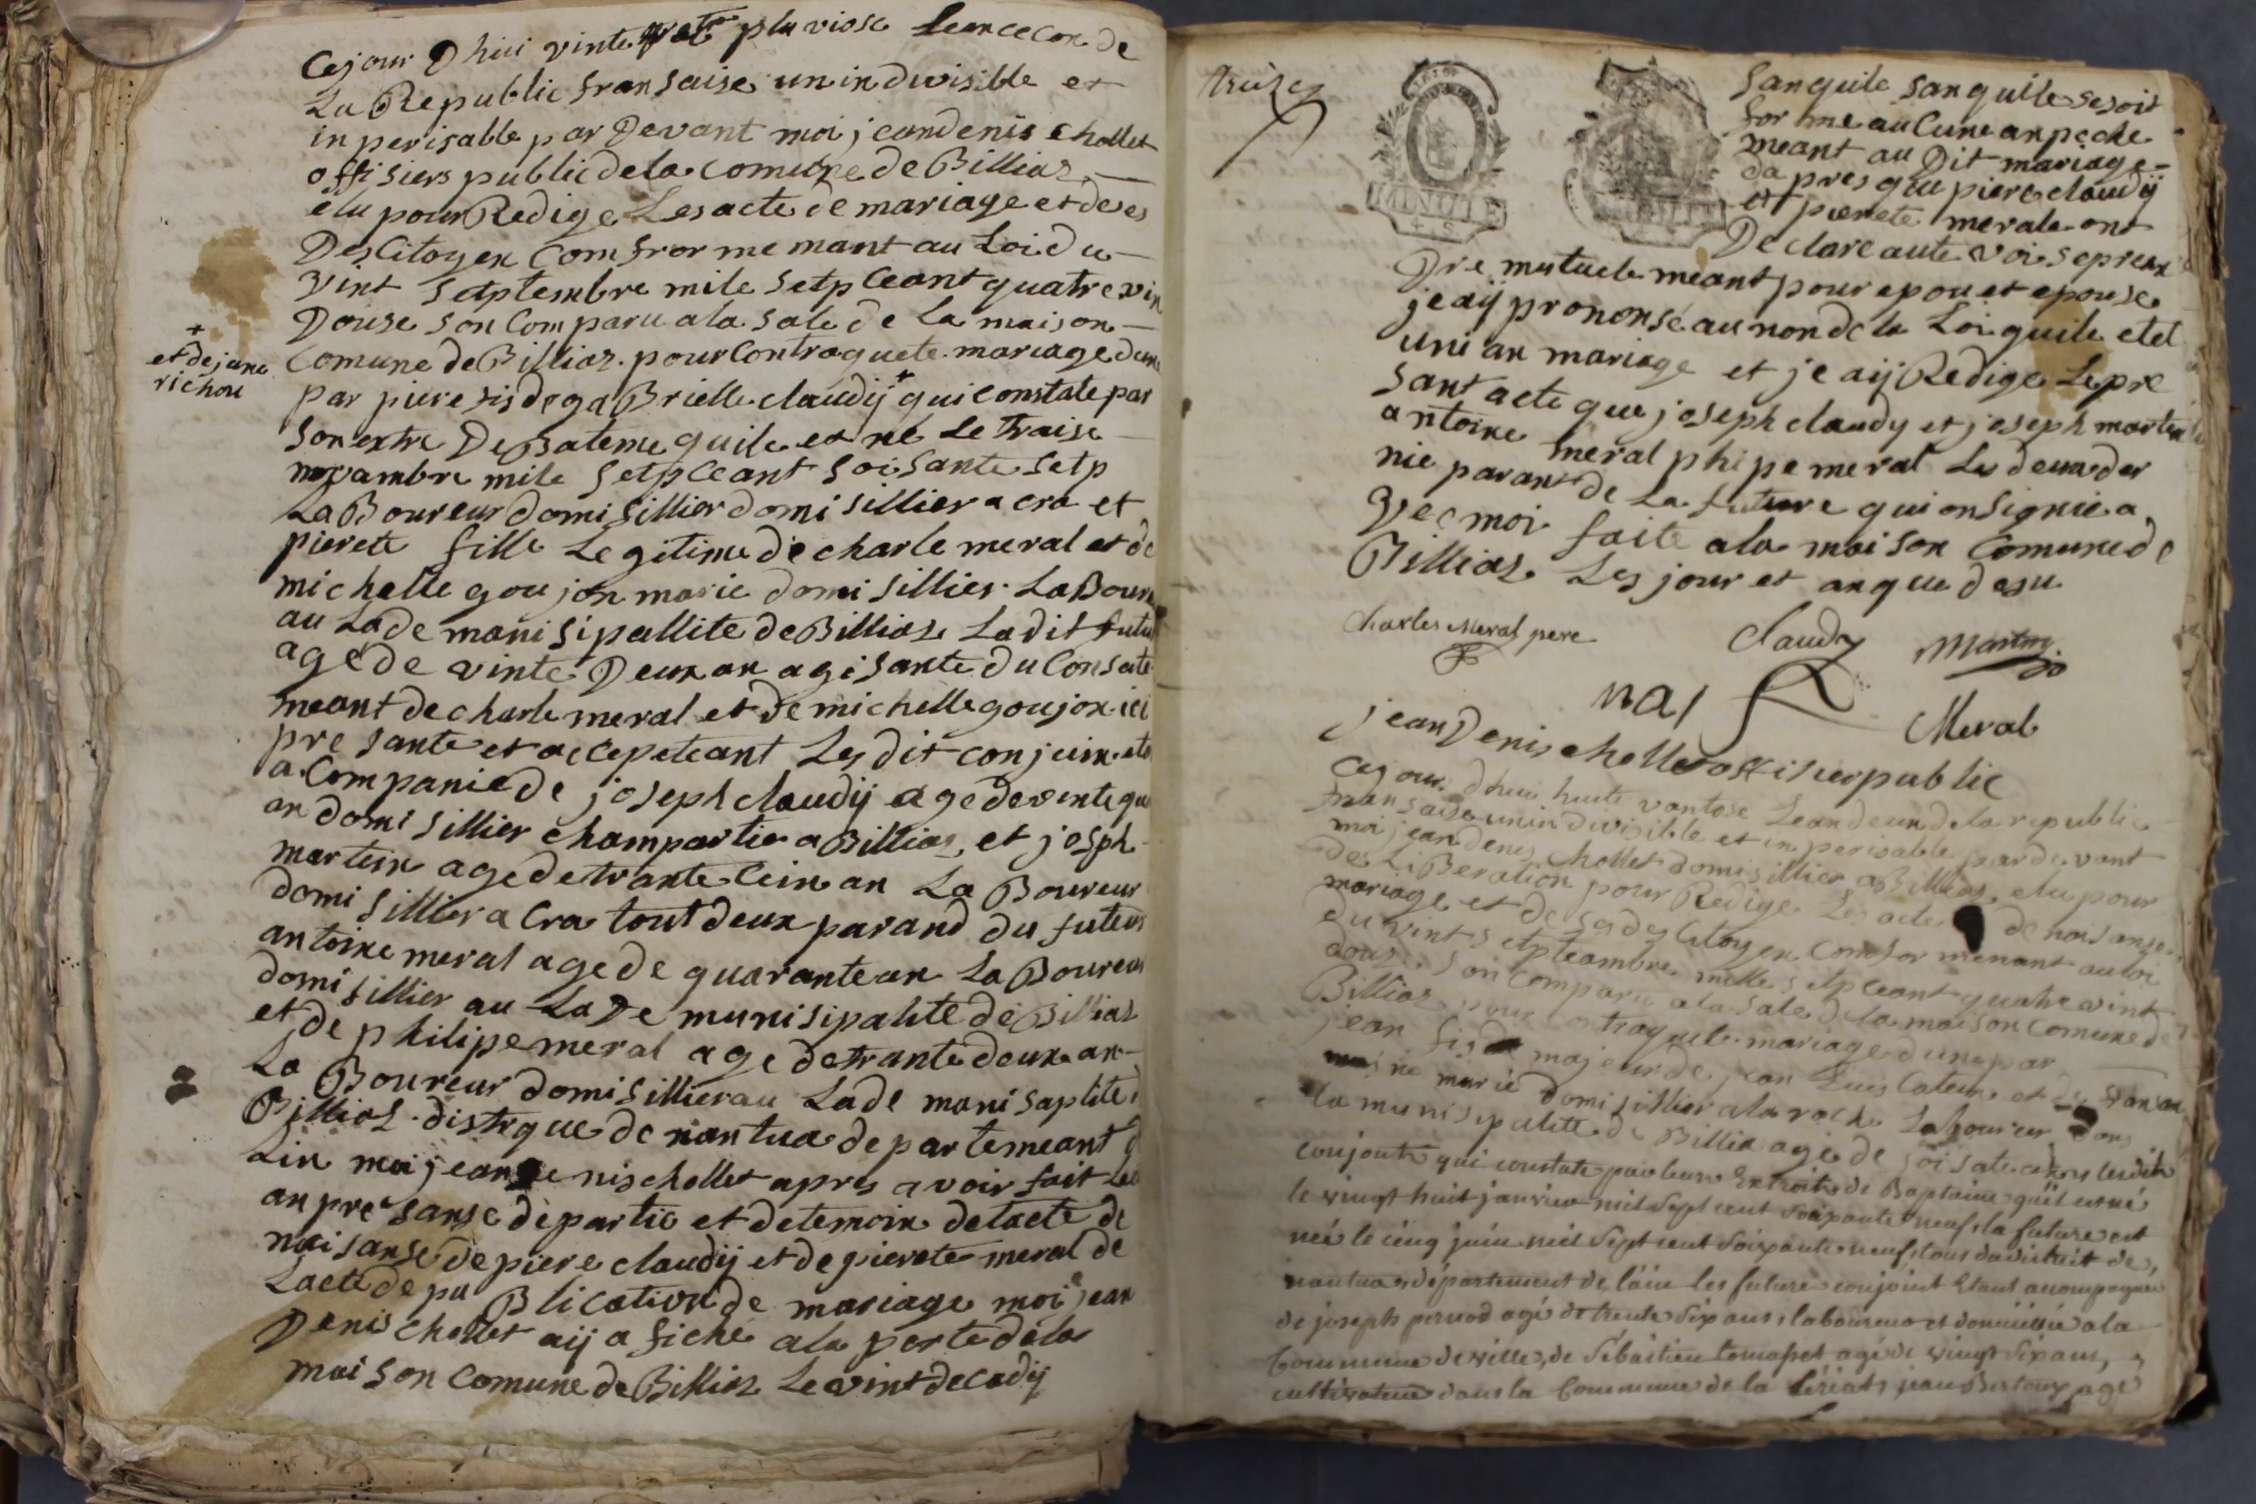 Cejour Dhui vinte pluviose Leancecon de
La Republic fransaise unindivisible et
inperisable par Devant moi jeandenis chollet
offisiers public dela comune de Billiaz
elu pour Redige Les acte de mariage et deses
Des Citoyen Comfrormemant au Loi du
Vint Setptembre mile Setp Ceant quatrevin
Douse son Comparu ala Sale de La maison
Comune de Billiaz pour Contraquete mariage dune
+
et de jane
richon
par piere fis de gaBrielle claudij + qui Constate par
Son extre De Bateme quile et né Le traise
novambre mile Setp Ceant Soisante Setp
LaBoureur domisillier domisillier a cra et
pierete fille Legitime de charle meral et de
michelle goujon marie domisillier LaBour
au Lade manisipallite de Billiaz Ladit futu
age de vinte Deux an agisante du Consate
meant de charle meral et de michelle goujon ici
presante et accepeteant Les dit conjuin ete
a Companie de joseph claudij age de vente qua
an domisillier champartie a Billiaz et josph
martein age de trante Cein an La Boureur
domisillier a Cra tout deux parand du futeur
antoine meral age de quarantean La Boureur
domisillier au Lade munisipalite de Billiaz
et de philipe meral age de trante deux an
La Boureur domisillier au Lade manisaplite
Billiaz distrque de nantua departemeant d
Lin moi jean denis chollet apres avoir fait Le
an presanse de partie et de temoin de Lacte de
naisanse de piere claudij et de pierete meral de
Lacte de puBlication de mariage moi jean
Denis chollet aij afiche ala porte de la
maison comune de Billiaz Le vint decadij
treize
MINUTE
San quile san quile se soit
for me auCune anpeche
meant au Dit mariage
dapres que piere claudij
et pierete merale ont
Declare aute vois se pren
Dre mutuele meant pour epou et epouse
je aij prononsé au non de la Loi quile etet
uni an mariage et je aij Redige Le pre
sant acte que joseph claudy et joseph martein
antoine meral phipe meral Les deux der
nie parant de La future qui on Signie a
Vec moi faite ala maison Comune de
Billiaz Les jour et an que desu
Charles Meral pere
Claudy
Martin
Meral
jean Denis chollet offisier public
Cejour dhui huite vantose Leandeux dela republic
fransaise unindivisible et inperisable par devant
moi jean denis chollet domisillier a Billiaz elu pour
deLiBeration pour Redige Les acte de naisanse
mariage et de ses des Citoyen Confor memant au loi
du vint setpteambre mille setpceant quatre vint
douz son Comparu ala Sale dela maison Comune de
Billiaz pour Contraquete mariage dune par
jean fis majeur de jean Luis et de
marie domisillier ala roche Laboureur dans
la munisipalite de Billia age de
conjoints qui constate par leurs Extraits de Baptaime quil est né
le vingt huit janvier mil sept cent soixante neuf, la future est
née le cinq juin mil sept cent soixante neuf, tous du district de
nantua département de l'ain les future conjoint Etant accompagné
de joseph agé de trente six ans, laboureur et domicilié a la
Commune de ville, de Sébastien agé de vingt six ans,
cultivateur dans la Commune de la jean agé